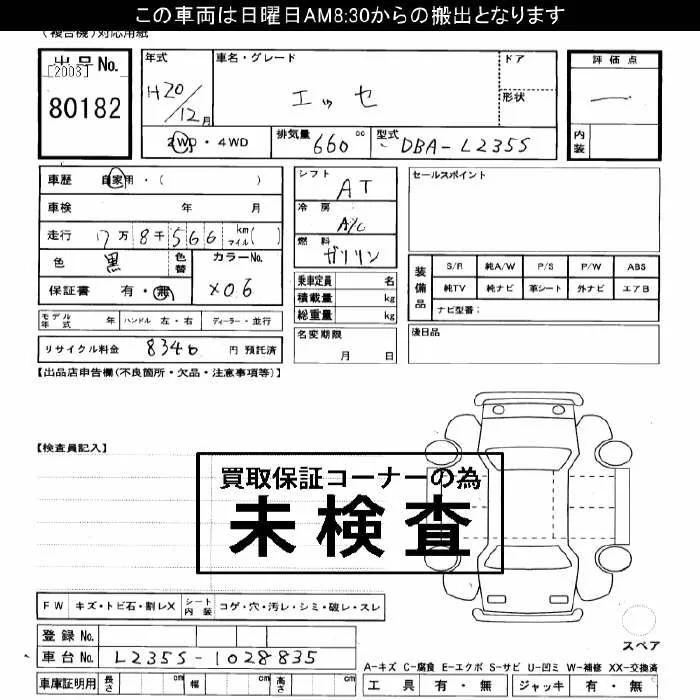 この車両は日曜日AM8:30からの搬出となります
(複合機)対応用紙
出品No.
[2003]
80182
年式
H20/12月
車名・グレード
エッセ
ドア
形状
評価点
一
内装
2WD・4WD
排気量 660 cc
型式 DBA-L235S
車歴 自家用・( )
車検 年 月
走行 7万8千566 km マイル( )
色 黒 色替
カラーNo. X06
保証書 有・無
モデル年式 年 ハンドル 左・右 ディーラー・並行
リサイクル料金 8340 円 預託済
シフト AT
冷房 A/C
燃料 ガソリン
乗車定員 名
積載量 kg
総重量 kg
名変期限
月 日
セールスポイント
装備品
S/R 純A/W P/S P/W ABS
純TV 純ナビ 革シート 外ナビ エアB
ナビ型番:
後日品
【出品店申告欄(不良箇所・欠品・注意事項等)】
【検査員記入】
買取保証コーナーの為
未検査
FW キズ・トビ石・割レX シート内装 コゲ・穴・汚レ・シミ・破レ・スレ
スペア
登録No.
車台No. L235S-1028835
車庫証明用 長さ cm 幅 cm 高さ cm
A-キズ C-腐食 E-エクボ S-サビ U-凹ミ W-補修 XX-交換済
工具 有・無 ジャッキ 有・無